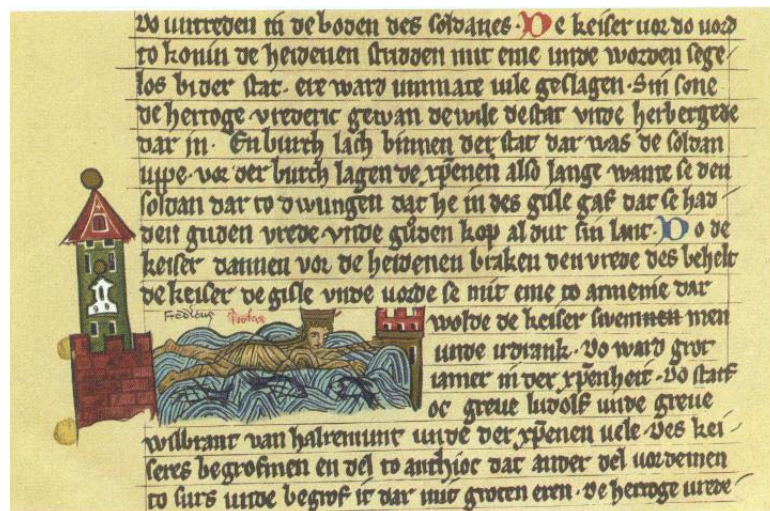 vo vntreden in de boden des soldanes. De keiser vor do vord
to konin de heidenen stridden mit eme unde worden sege/
los bi der stat. ere ward unmate vile geslagen. Sin sone
de hertoge vrederic gewan de wile de stat unde herbergede
dar in. En burch lach binnen der stat dar was de soldan
uppe. vor der burch lagen de xp̄enen also lange wante se den
soldan dar to dwungen dat he in des gisle gaf dat se had/
den guden vrede vnde gůden kop al dur sin lant. Do de
keiser dannen vor de heidenen braken den vrede des behelt
de keiser de gisle vnde vorde se mit eme to armenie dar
wolde de keiser swemmen
unde irdrank. Do ward grot
iamer in der xp̄enheit. Do starf
oc greve ludolf unde greve
wilbrant van halremunt unde der xp̄enen vele. Des kei/
seres begrofmen en del to anthioc dat ander del vor
to surs unde begrof it dar mit groten eren. de hertoge vrede/